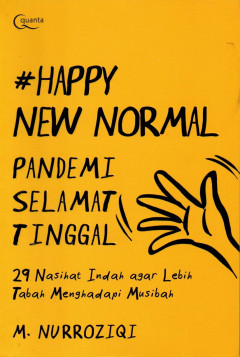 Quanta
#HAPPY
NEW NORMAL
PANDEMI
SELAMAT
TINGGAL
29 Nasihat Indah agar Lebih
Tabah Menghadapi Musibah
M. NURROZIQI